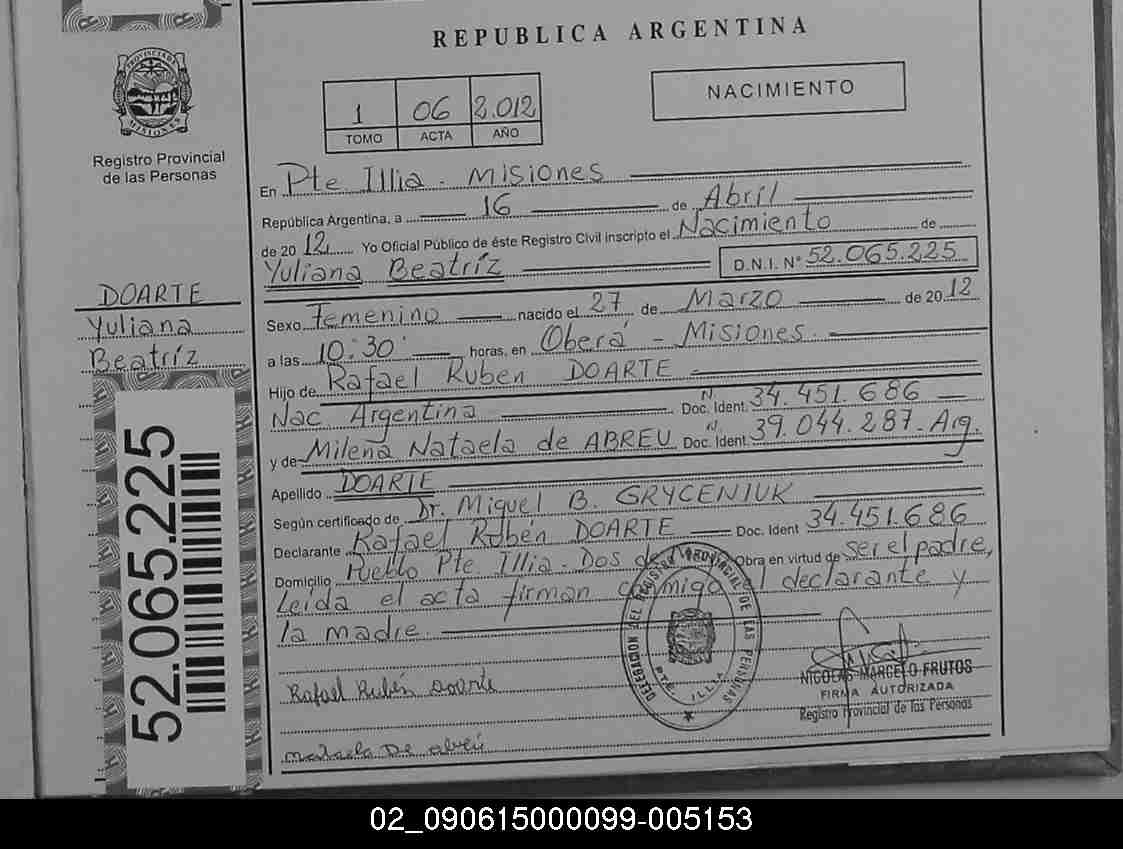 REPUBLICA ARGENTINA
1 06 2.012
TOMO ACTA AÑO
NACIMIENTO
PROVINCIA DE MISIONES
Registro Provincial
de las Personas
En Pte. Illia - Misiones
República Argentina, a 16 de Abríl
de 20 12 Yo Oficial Público de éste Registro Civil inscripto el Nacimiento de
Yuliana Beatríz D.N.I. N° 52.065.225
DOARTE
Yuliana
Beatríz
Sexo Femenino nacido el 27 de Marzo de 20 12
a las 10:30' horas, en Oberá - Misiones.
Hijo de Rafael Ruben DOARTE
Nac. Argentina Doc. Ident. N. 34.451.686
y de Milena Nataela de ABREU Doc. Ident. N. 39.044.287-Arg.
Apellido DOARTE
Según certificado de Dr. Miguel B. GRYCENIUK
Declarante Rafael Rubén DOARTE Doc. Ident 34.451.686
Domicilio Pueblo Pte. Illia - Dos de Obra en virtud de ser el padre,
Leída el acta firman conmigo el declarante y
la madre.
52.065.225
DELEGACION DEL REGISTRO PROVINCIAL DE LAS PERSONAS
PTE. ILLIA
Rafael Rubén Doarte
NICOLAS MARCELO FRUTOS
FIRMA AUTORIZADA
Registro Provincial de las Personas
Nataela De Abreu
02_090615000099-005153